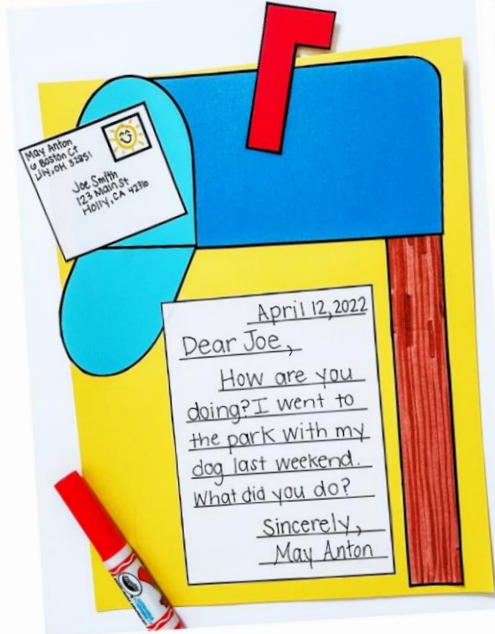 May Anton
6 Boston Ct
Lily, OH 32851
Joe Smith
123 Main St
Holly, CA 42316
April 12, 2022
Dear Joe,
How are you
doing? I went to
the park with my
dog last weekend.
What did you do?
Sincerely,
May Anton